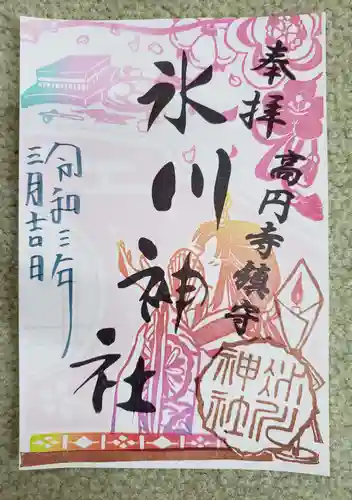 奉拝
高円寺鎮守
氷川神社
令和三年
三月吉日
氷川
神社